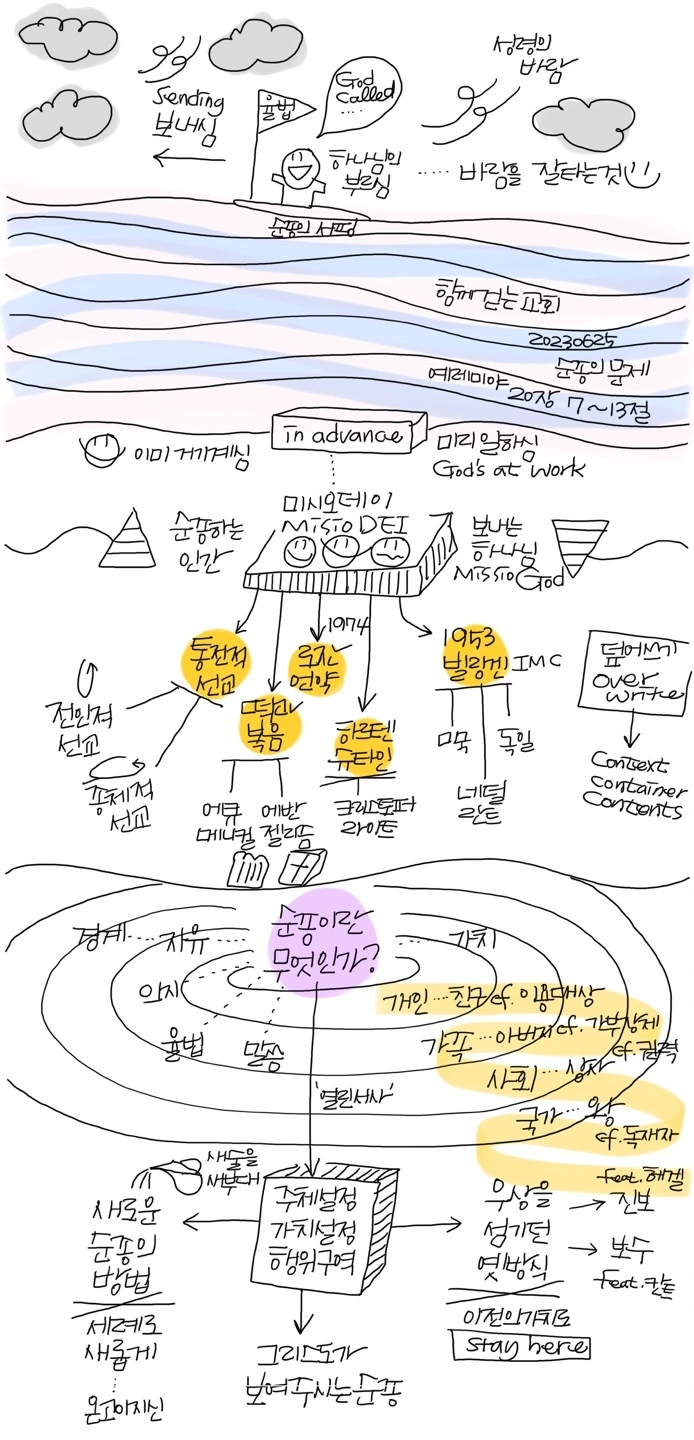 성령의
바람
God
called
....
Sending
보내심
율법
하나님의
부르심
..... 바람을 잘타는것
순종의 서핑
함께 걷는 교회
20230625
순종의 문제
예레미야 20장 7~13절
in advance
이미 거기계심
미리 일하심
God's at work
미시오데이
Missio DEI
순종하는
인간
보내는
하나님
Missio God
1974
통전적
선교
로잔
언약
1953
빌링겐 IMC
덮어쓰기
over
write
전인적
선교
총체적
선교
떡과
복음
하르텐
슈타인
미국
독일
네덜
란드
context
container
contents
에큐
메니컬
에반
젤리즘
크리스토퍼
라이트
순종이란
무엇인가?
경계 ... 자유
가치
의지
율법
말씀
개인 ... 친구 cf. 이용대상
가족 ... 아버지 cf. 가부장제
cf. 권력
사회 ... 상사
국가 ... 왕
cf. 독재자
'열린서사'
새술을
새부대
새로운
순종의
방법
세례로
새롭게
온고이지신
주체설정
가치설정
행위구역
우상을
섬기던
옛방식
feat. 헤겔
진보
보수
feat. 칸트
이전의가치로
stay here
그리스도가
보여주시는 순종